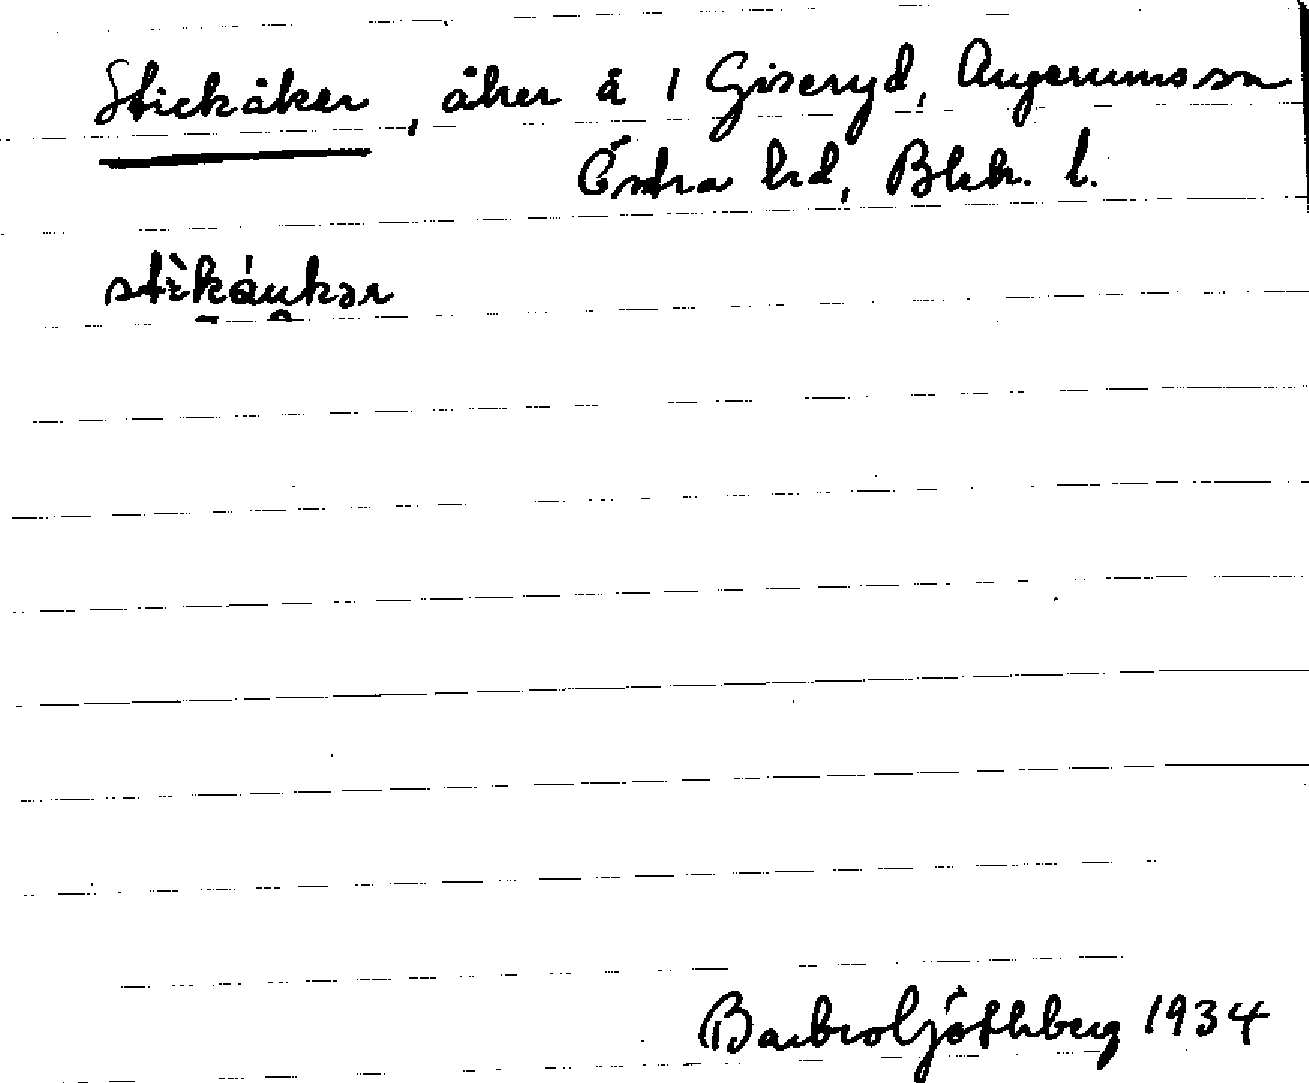 Stickåker, åker å 1 Giseryd, Augerums sn
Östra hd, Blek. l.
stìkáukər
Barbro Göthberg 1934